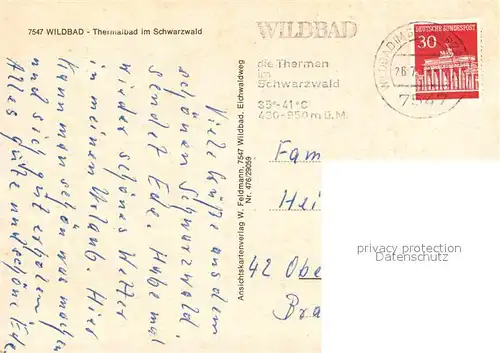 7547 WILDBAD - Thermalbad im Schwarzwald
WILDBAD
die Thermen
im
Schwarzwald
35°-41°C
430-950m ü.M.
DEUTSCHE BUNDESPOST
30
7547
Viele Grüße aus dem
schönen Schwarzwald.
sendet Ede. Habe mal
wieder schönes Wetter
in meinem Urlaub. Hier
kann man schön was machen
und sich gut erholen.
Alles gute und schöne Ede
Ansichtskartenverlag W. Feldmann, 7547 Wildbad, Eichwaldweg
Nr. 476/29059
Fam
Hei
42 Obe
Bra
privacy protection
Datenschutz